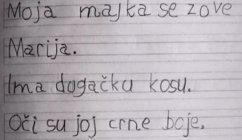 Moja majka se zove
Marija.
Ima dugačku kosu.
Oči su joj crne boje.